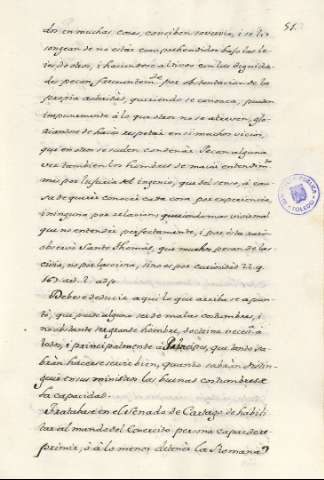 51.
dos en muchas cosas, conciben sovervia, i se li-
songean de no estar comprehendidos bajo las le-
ies, de otros, i haciendose altivos en las dignida-
des pecan frecuentemte por obstentacion de la
propia autoridad, queriendo se conosca, pueden
impunemente á lo que otros no se atreven, glo-
riandose de hacer respetar en sí mucho vicios,
que en otros se suelen condenar. Pecan alguna
vez tambien los hombres de maior entendimto
mas por lusuria del ingenio, que del senso, á cau-
sa de querer conocer cada cosa por experiencia,
i ninguna por relacion
que no entender perfectamente, i por esto
observó Santo Thomás, que muchos pecan de las-
civia, no por lascivia, sino es por curiosidad 22. q.
167. art. 2. ad.
Deberé deducir aqui lo que arriba se apun-
tó, que puede alguna ser de malas costumbres, i
no obstante ser grande hombre, doctrina necesaria á
todos, i principalmente á Principes, que tanto sa-
brán hacerse servir bien, quanto sabrán distin-
guir en sus ministros las buenas costumbres de
la capacidad.
Tratabase en el Senado de Cartago de habili-
tar al mando del Exercito persona capaz de re-
primir, ó á lo menos detener la Romana
PUBLICA
TOLEDO